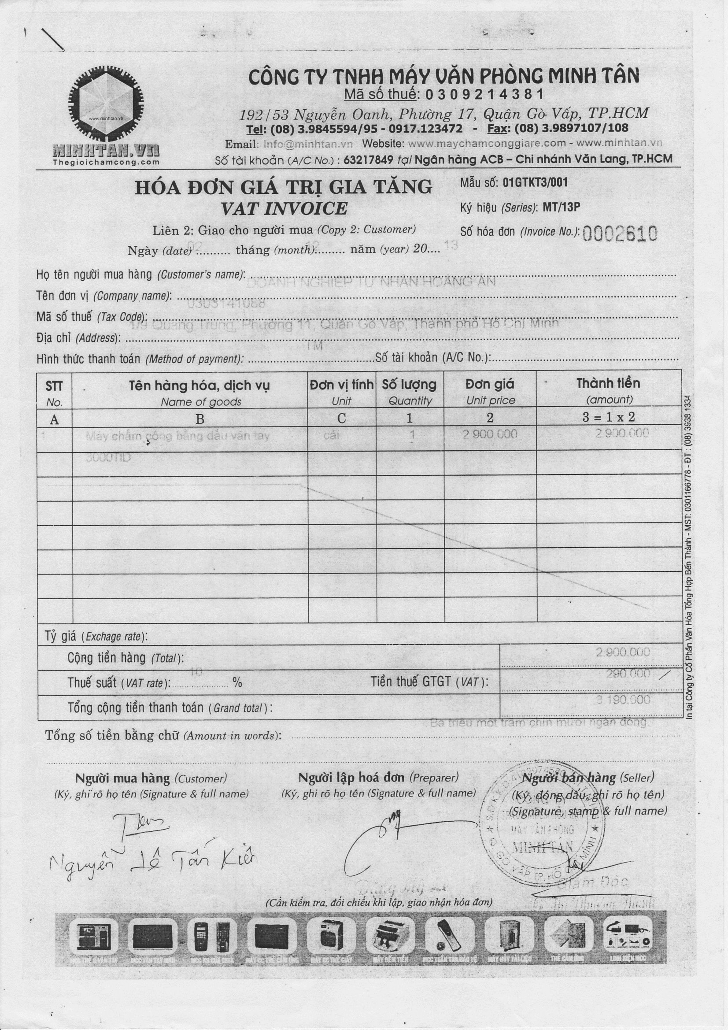 CÔNG TY TNHH MÁY VĂN PHÒNG MINH TÂN
Mã số thuế: 0 3 0 9 2 1 4 3 8 1
192/53 Nguyễn Oanh, Phường 17, Quận Gò Vấp, TP.HCM
Tel: (08) 3.9845594/95 - 0917.123472 - Fax: (08) 3.9897107/108
Email: info@minhtan.vn Website: www.maychamconggiare.com - www.minhtan.vn
Số tài khoản (A/C No.) : 63217849 tại Ngân hàng ACB – Chi nhánh Văn Lang, TP.HCM
www.minhtan.vn
MINHTAN.VN
Thegioichamcong.com
HÓA ĐƠN GIÁ TRỊ GIA TĂNG
VAT INVOICE
Liên 2: Giao cho người mua (Copy 2: Customer)
Ngày (date) :.......... tháng (month):........ năm (year) 20.... 13
Mẫu số: 01GTKT3/001
Ký hiệu (Series): MT/13P
Số hóa đơn (Invoice No.): 0002610
Họ tên người mua hàng (Customer's name):
DOANH NGHIỆP TƯ NHÂN HOÀNG ÂN
Tên đơn vị (Company name):
Mã số thuế (Tax Code):
1/9 Quang Trung, Phường 11, Quận Gò Vấp, Thành phố Hồ Chí Minh
Địa chỉ (Address):
TM
Hình thức thanh toán (Method of payment): Số tài khoản (A/C No.):
STT Tên hàng hóa, dịch vụ Đơn vị tính Số lượng Đơn giá Thành tiền
No. Name of goods Unit Quantity Unit price (amount)
A B C 1 2 3 = 1 x 2
1 Máy chấm công bằng dấu vân tay cái 1 2 900.000 2 900.000
3000TID
Tỷ giá (Exchage rate):
Cộng tiền hàng (Total): 2 900.000
Thuế suất (VAT rate): 10 % Tiền thuế GTGT (VAT): 290 000
Tổng cộng tiền thanh toán (Grand total): 3 190.000
Ba triệu một trăm chín mươi ngàn đồng
Tổng số tiền bằng chữ (Amount in words):
Người mua hàng (Customer) Người lập hoá đơn (Preparer) Người bán hàng (Seller)
(Ký, ghi rõ họ tên (Signature & full name) (Ký, ghi rõ họ tên (Signature & full name) (Ký, đóng dấu, ghi rõ họ tên)
(Signature, stamp & full name)
MINH TÂN
Nguyễn Lê Tấn Kiệt
Giám Đốc
(Cần kiểm tra, đối chiếu khi lập, giao nhận hóa đơn)
In tại Công ty Cổ Phần Văn Hóa Tổng Hợp Bến Thành - MST: 0301166778 - ĐT : (08) 3938 1334